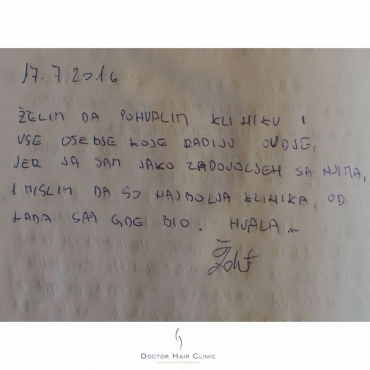 17.7.2016
ŽELIM DA POHVALIM KLINIKU I
VSE OSEBJE KOJE RADIJU OVDJE,
JER JA SAM JAKO ZADOVOLJEN SA NJIMA,
I MISLIM DA SO NAJBOLJA KLINIKA, OD
KADA SAM GDE BIO. HVALA...
DOCTOR HAIR CLINIC